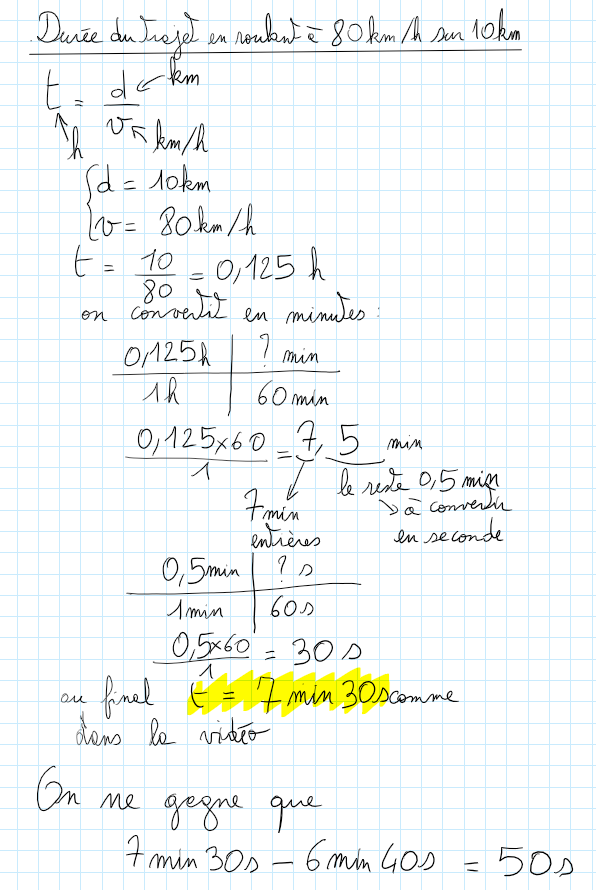 Durée du trajet en roulant à 80km/h sur 10km
t = d/v
km
h
km/h
d = 10km
v = 80km/h
t = 10/80 = 0,125 h
on convertit en minutes :
0,125h | ? min
1h | 60min
0,125×60/1 = 7,5 min
7min entières
le reste 0,5 min
à convertir
en seconde
0,5min | ? s
1min | 60s
0,5×60/1 = 30 s
au final t = 7 min 30s comme
dans la vidéo
On ne gagne que
7min30s − 6min40s = 50s